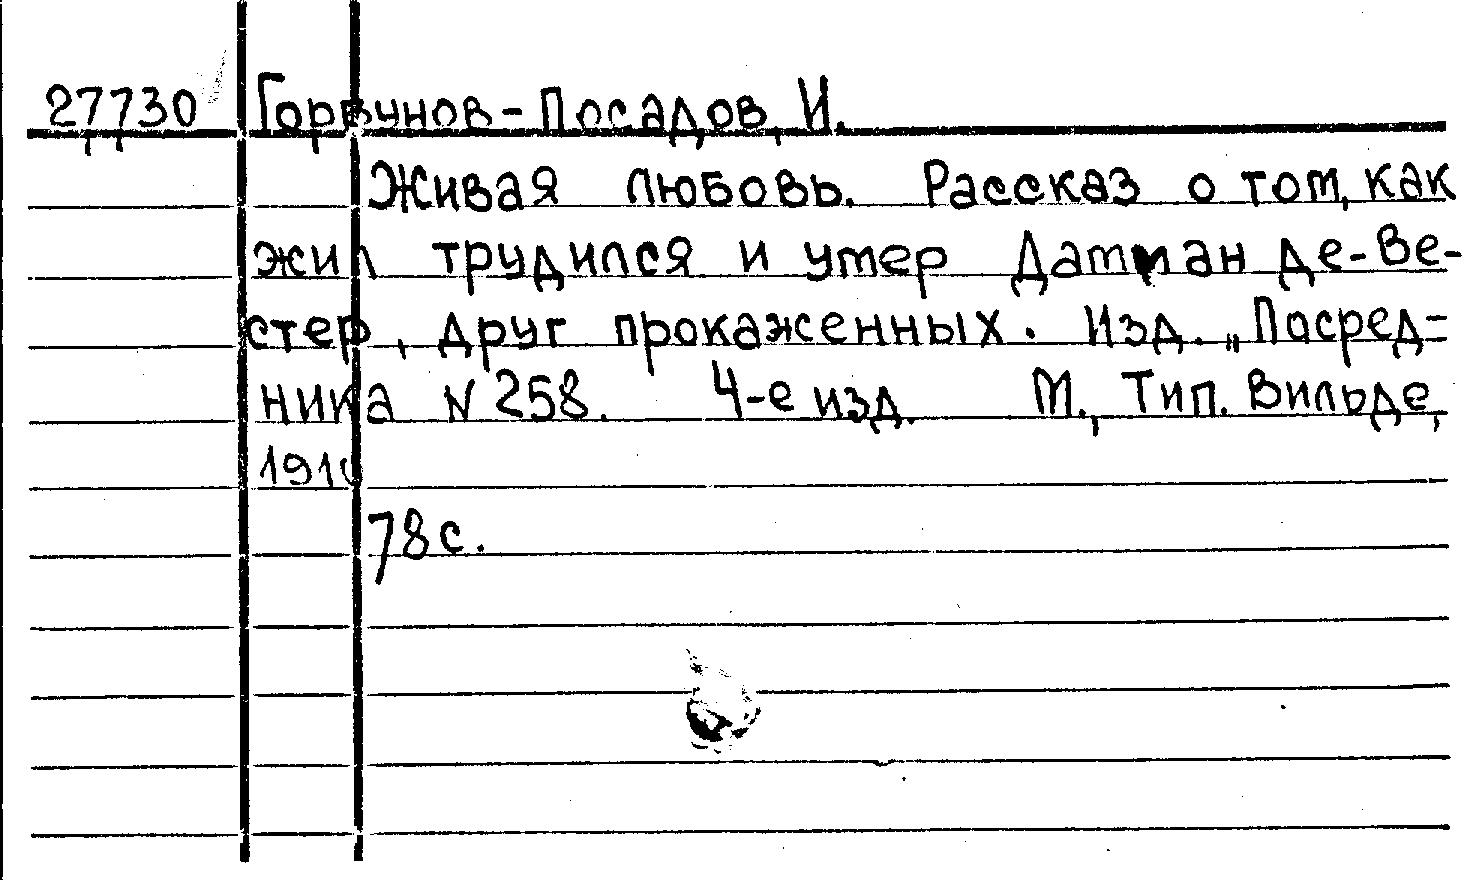 27730 Горбунов-Посадов, И.
Живая любовь. Рассказ о том, как
жил трудился и умер Датман де-Ве-
стер, друг прокаженных. Изд. „Посред-
ника N 258. 4-е изд. М., Тип. Вильде,
1910
78 с.